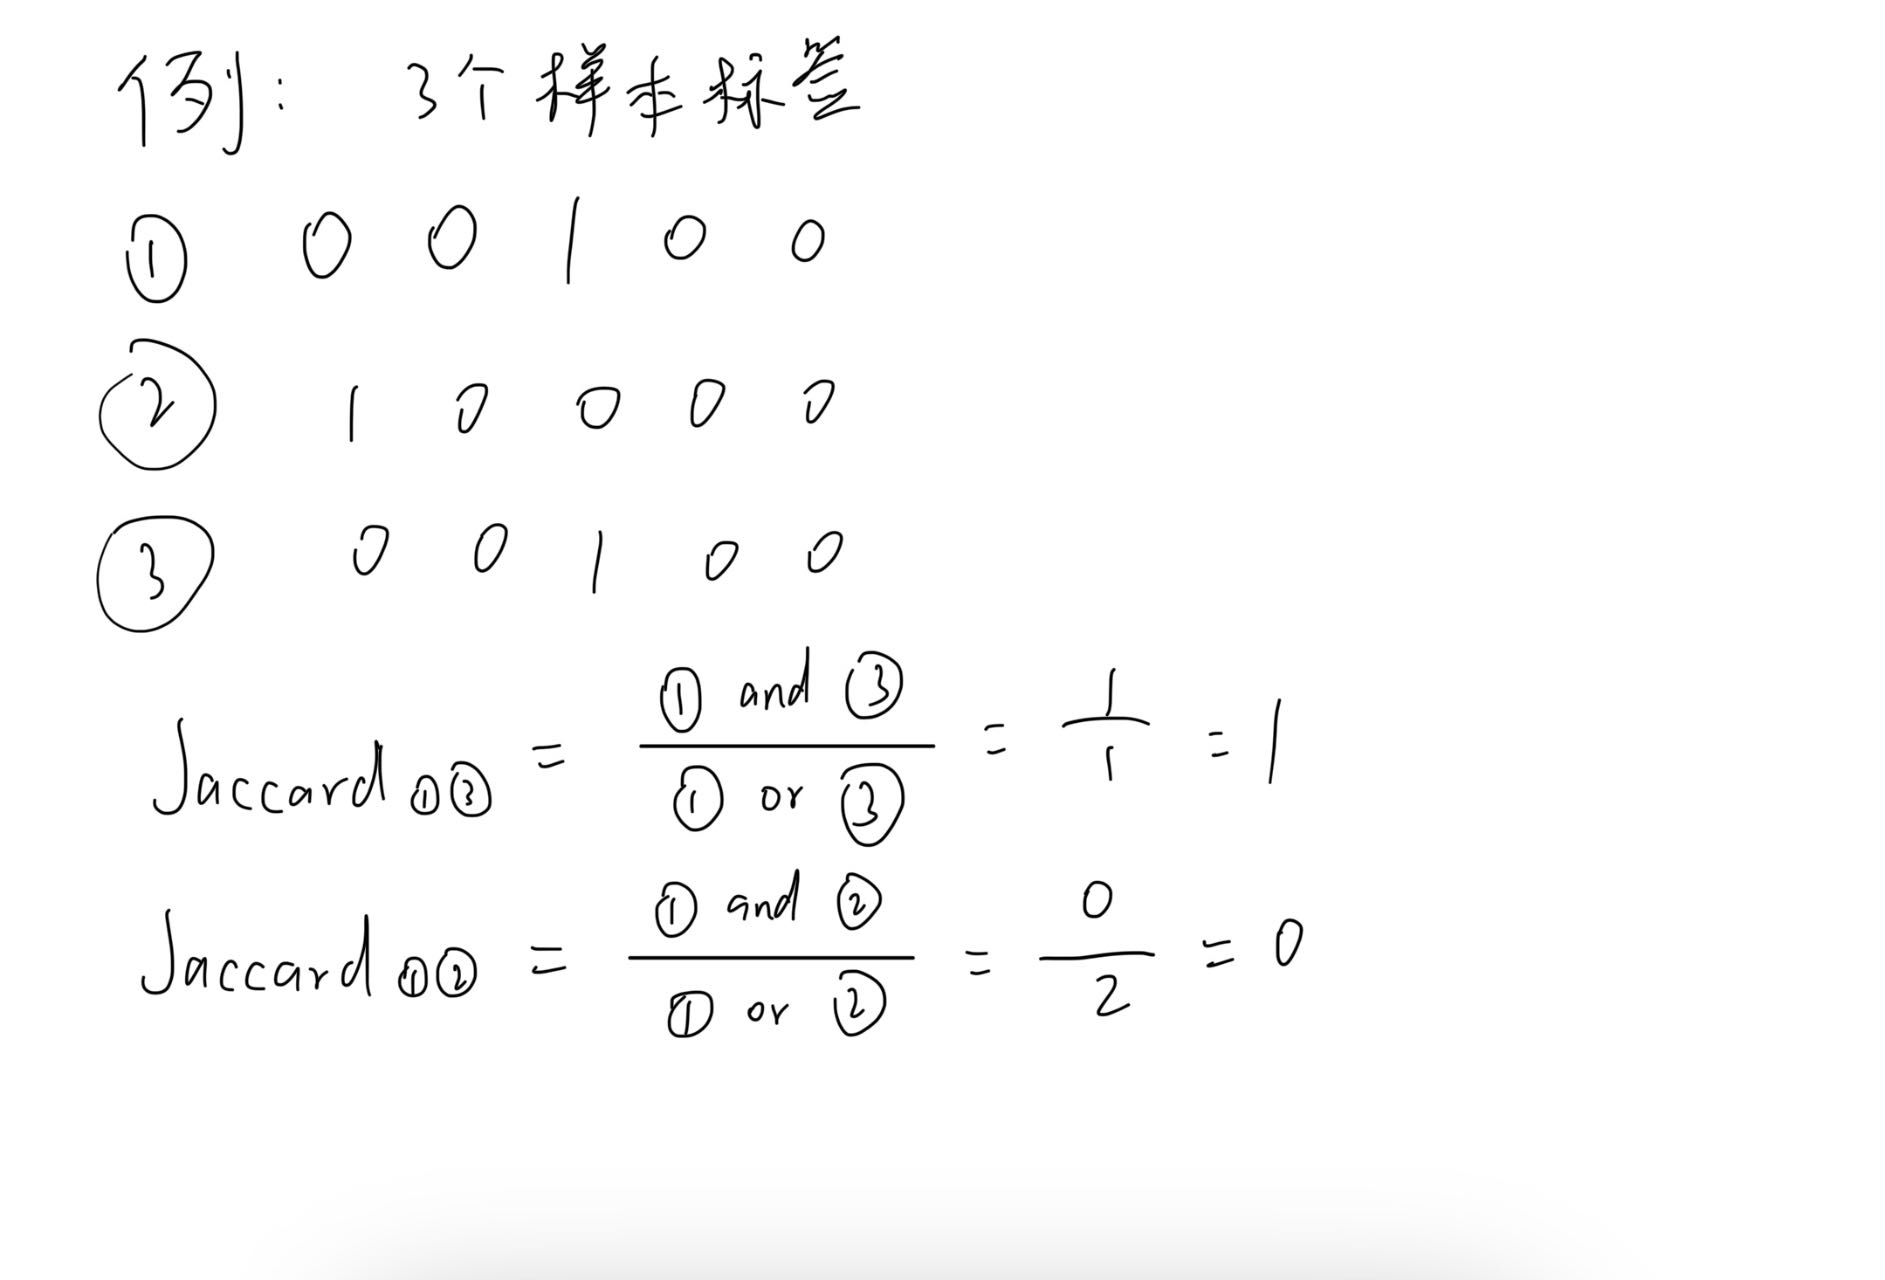 例: 3个样本标签
① 0 0 1 0 0
② 1 0 0 0 0
③ 0 0 1 0 0
Jaccard①③ = ① and ③ / ① or ③ = 1 / 1 = 1
Jaccard①② = ① and ② / ① or ② = 0 / 2 = 0